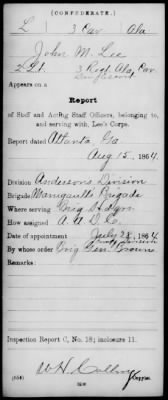 (CONFEDERATE.)
L 3 Cav Ala
John M. Lee
2 Lt. 3 Regt. Ala. Cav.
Appears on a
Report
of Staff and Acting Staff Officers, belonging to,
and serving with, Lee's Corps.
Report dated Atlanta Ga
Aug 15, 1864.
Division Andersons Division
Brigade Manigaults Brigade
Where serving Brig Hdqrs
How assigned A. A. D. C.
Date of appointment July 28, 1864
By whose order Brig Gen Brown
Remarks:
Inspection Report C, No. 18; inclosure 11.
Copyist.